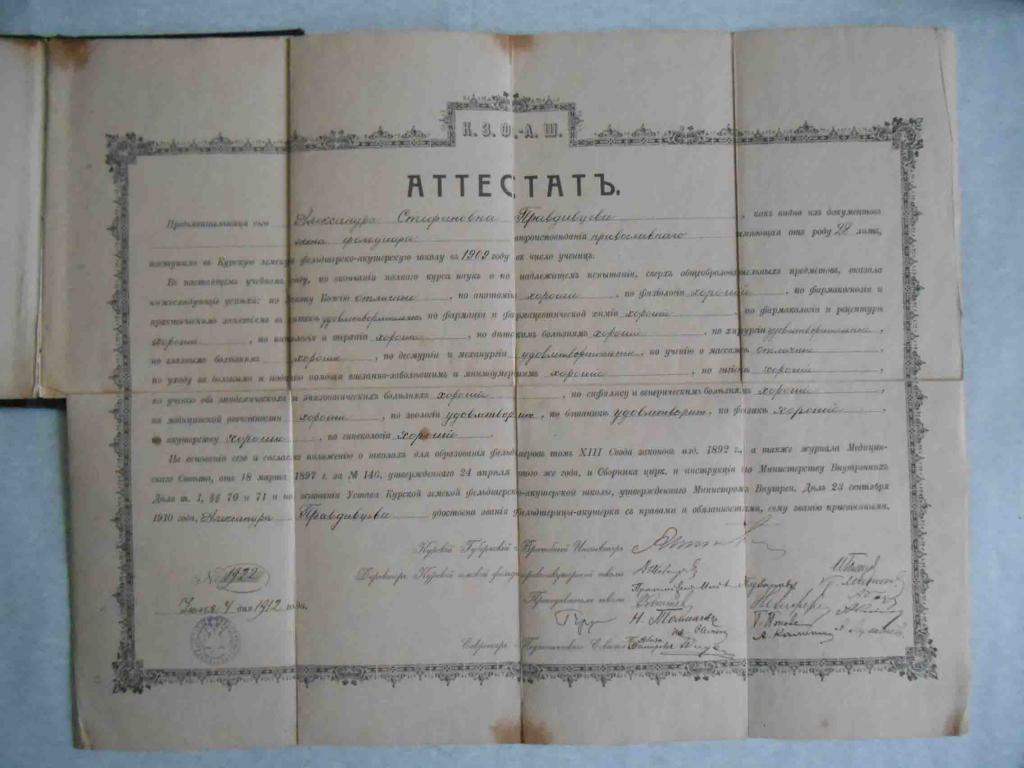 К. З. Ф.-А. Ш.
АТТЕСТАТЪ.
Предъявительница сего Александра Стефановна Правдивцева, какъ видно изъ документовъ
жена фельдшера вѣроисповѣданія православнаго имѣющая отъ роду 28 лѣтъ,
поступила въ Курскую земскую фельдшерско-акушерскую школу въ 1909 году въ число ученицъ.
Въ настоящемъ учебномъ году, по окончаніи полнаго курса наукъ и по надлежащемъ испытаніи, сверхъ общеобразовательныхъ предметовъ, оказала
нижеслѣдующіе успѣхи: по Закону Божію отлично, по анатоміи хорошіе, по физіологіи хорошіе, по фармакогнозіи и
практическимъ занятіямъ въ аптекѣ удовлетворительно, по фармаціи и фармацевтической химіи хорошіе, по фармакологіи и рецептурѣ
хорошіе, по патологіи и терапіи хорошіе, по дѣтскимъ болѣзнямъ хорошіе, по хирургіи удовлетворительно,
по глазнымъ болѣзнямъ хорошіе, по десмургіи и механургіи удовлетворительно, по ученію о массажѣ отлично,
по уходу за больными и поданію помощи внезапно-заболѣвшимъ и мнимоумершимъ хорошіе, по гигіенѣ хорошіе,
по ученію объ эпидемическихъ и эпизоотическихъ болѣзняхъ хорошіе, по сифилису и венерическимъ болѣзнямъ хорошіе,
по медицинской отчетности хорошіе, по зоологіи удовлетворит., по ботаникѣ удовлетворит., по физикѣ хорошіе,
по акушерству хорошіе, по гинекологіи хорошіе.
На основаніи сего и согласно положенію о школахъ для образованія фельдшеровъ томъ XIII Свода законовъ изд. 1892 г., а также журнала Медицин-
скаго Совѣта, отъ 18 марта 1897 г. за № 146, утвержденнаго 24 апрѣля того же года, и Сборника цирк. и инструкцій по Министерству Внутреннихъ
Дѣлъ т. I, §§ 70 и 71 и на основаніи Устава Курской земской фельдшерско-акушерской школы, утвержденнаго Министромъ Внутрен. Дѣлъ 23 сентября
1910 года, Александра Правдивцева удостоена званія Фельдшерицы-акушерки съ правами и обязанностями, сему званію присвоенными.
Курскій Губернскій Врачебный Инспекторъ
№ 1922 Директоръ Курской земской фельдшерско-акушерской школы
Преподаватели школы
Іюня 4 дня 1912 года.
Н. Толмачевъ
Секретарь Педагогическаго Совѣта